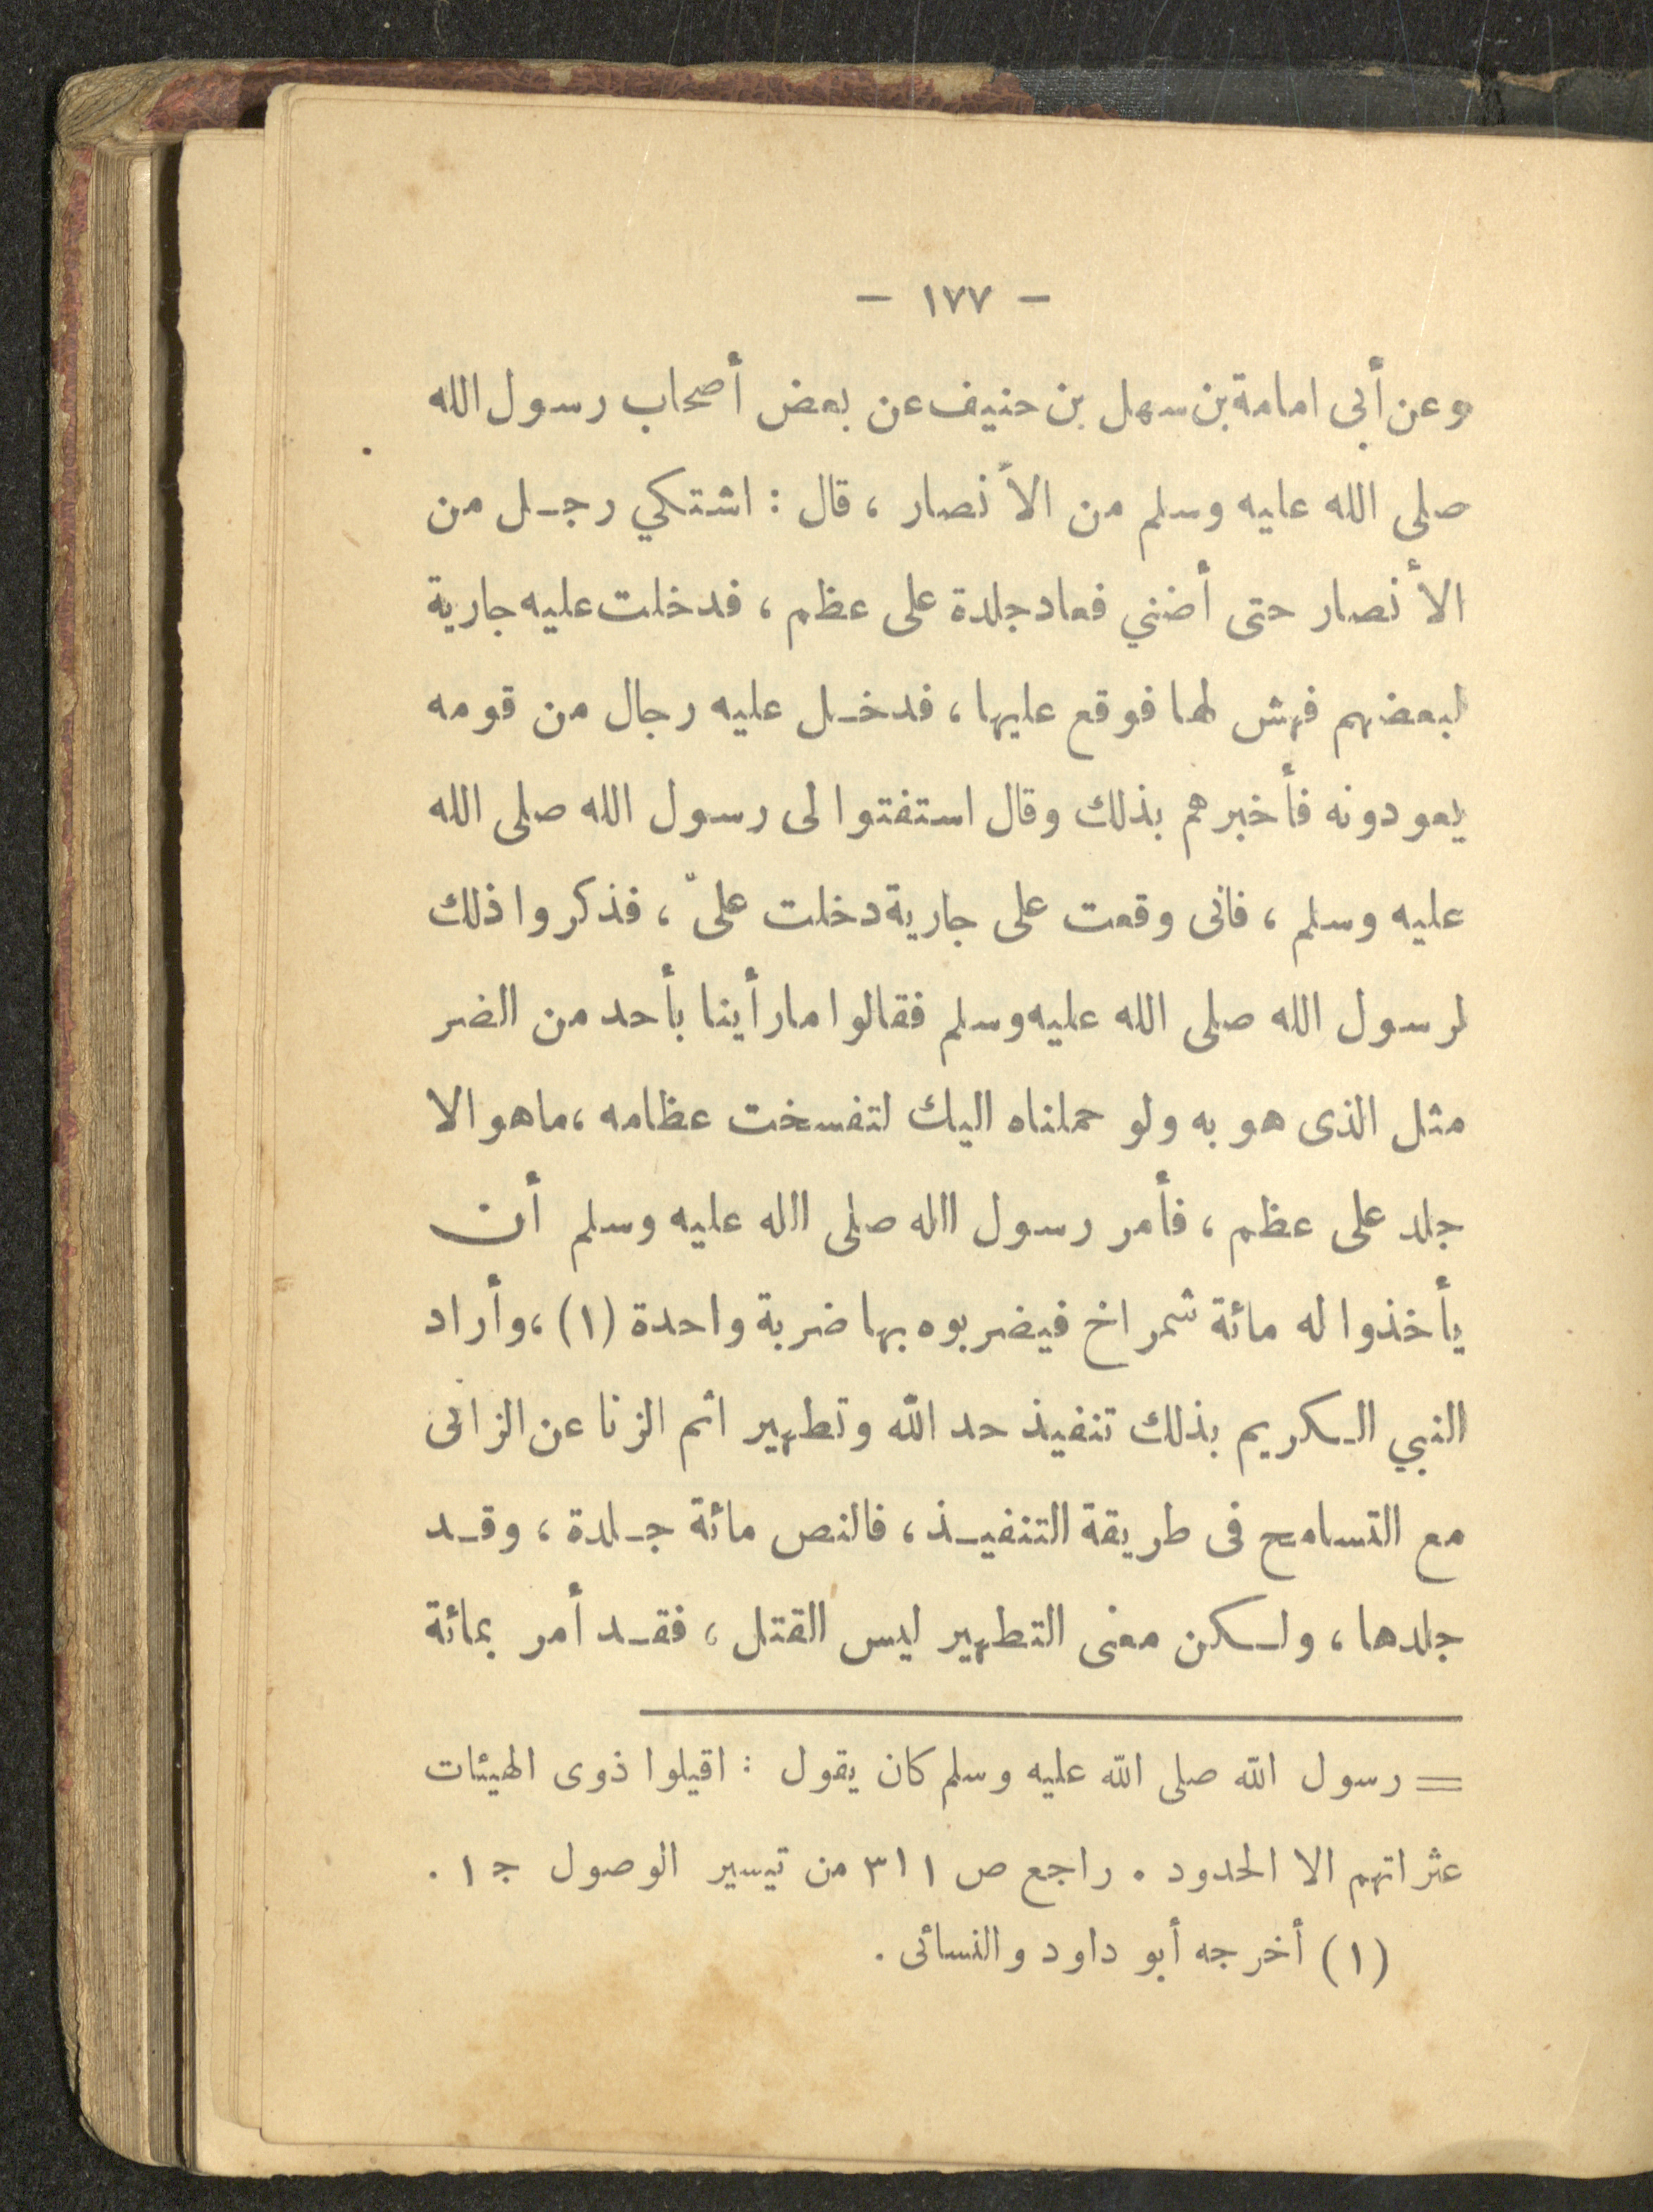 — ١٧٧ —
وعن أبى امامة بن سهل بن حنيف عن بعض أصحاب رسول الله
صلى الله عليه وسلم من الأنصار ، قال : اشتكي رجل من
الأنصار حتى أضني فعاد جلدة على عظم ، فدخلت عليه جارية
لبعضهم فهش لها فوقع عليها ، فدخل عليه رجال من قومه
يعودونه فأخبرهم بذلك وقال استفتوا لى رسول الله صلى الله
عليه وسلم ، فانى وقعت على جارية دخلت علىّ ، فذكروا ذلك
لرسول الله صلى الله عليه وسلم فقالوا ما رأينا بأحد من الضر
مثل الذى هو به ولو حملناه اليك لتفسخت عظامه ، ما هو الا
جلد على عظم ، فأمر رسول الله صلى الله عليه وسلم أن
يأخذوا له مائة شمراخ فيضربوه بها ضربة واحدة (١) ، وأراد
النبي الكريم بذلك تنفيذ حد الله وتطهير اثم الزنا عن الزانى
مع التسامح فى طريقة التنفيذ ، فالنص مائة جلدة ، وقد
جلدها ، ولكن معنى التطهير ليس القتل ، فقد أمر بمائة
= رسول الله صلى الله عليه وسلم كان يقول : اقيلوا ذوى الهيئات
عثراتهم الا الحدود . راجع ص ٣١١ من تيسير الوصول ج ١ .
(١) أخرجه أبو داود والنسائى .